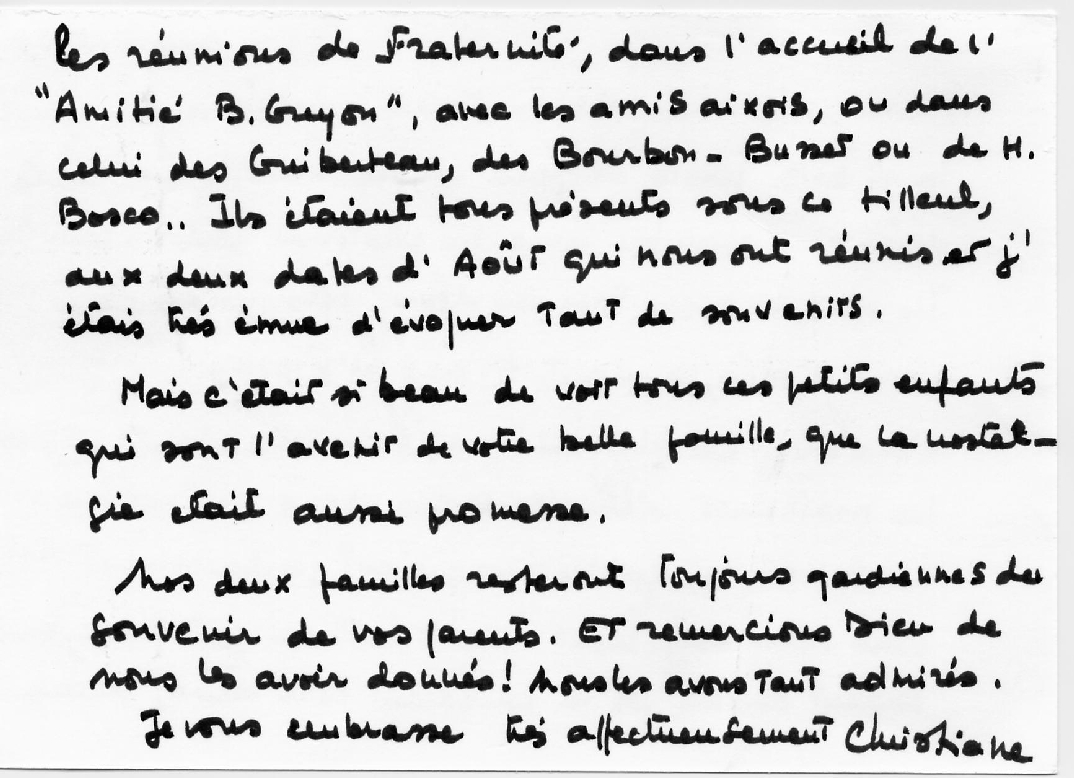 les réunions de Fraternité, dans l'accueil de l'
"Amitié B. Guyon", avec les amis aixois, ou dans
celui des Guiberteau, des Bourbon-Busset ou de H.
Bosco.. Ils étaient tous présents sous ce tilleul,
aux deux dates d'Août qui nous ont réunis et j'
étais très émue d'évoquer tant de souvenirs.
Mais c'était si beau de voir tous ces petits enfants
qui sont l'avenir de votre belle famille, que la nostal-
gie était aussi promesse.
Nos deux familles resteront toujours gardiennes du
souvenir de vos parents. Et remercions Dieu de
nous les avoir donnés! Nous les avons tant admirés.
Je vous embrasse très affectueusement Christiane